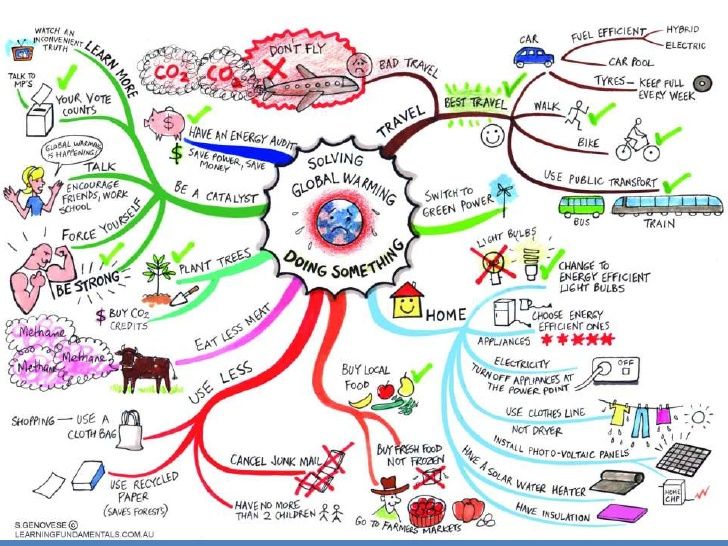 SOLVING
GLOBAL WARMING
DOING SOMETHING
TRAVEL
BAD TRAVEL
DONT FLY
CO2
CO2
BEST TRAVEL
CAR
FUEL EFFICIENT
HYBRID
ELECTRIC
CAR POOL
TYRES — KEEP FULL
EVERY WEEK
WALK
BIKE
USE PUBLIC TRANSPORT
BUS
TRAIN
SWITCH TO
GREEN POWER
HOME
LIGHT BULBS
CHANGE TO
ENERGY EFFICIENT
LIGHT BULBS
CHOOSE ENERGY
EFFICIENT ONES
APPLIANCES
ELECTRICITY
TURN OFF APPLIANCES AT
THE POWER POINT
OFF
USE CLOTHES LINE
NOT DRYER
INSTALL PHOTO-VOLTAIC PANELS
HAVE A SOLAR WATER HEATER
HOME
CHP
HAVE INSULATION
BUY LOCAL
FOOD
BUY FRESH FOOD
NOT FROZEN
GO TO FARMERS MARKETS
USE LESS
CANCEL JUNK MAIL
HAVE NO MORE
THAN 2 CHILDREN
USE RECYCLED
PAPER
(SAVES FORESTS)
SHOPPING — USE A
CLOTH BAG
EAT LESS MEAT
Methane
Methane
Methane
PLANT TREES
$ BUY CO2
CREDITS
BE A CATALYST
FORCE YOURSELF
BE STRONG
TALK
ENCOURAGE
FRIENDS, WORK
SCHOOL
GLOBAL WARMING
IS HAPPENING!
YOUR VOTE
COUNTS
TALK TO
MP'S
LEARN MORE
WATCH AN
INCONVENIENT
TRUTH
HAVE AN ENERGY AUDIT
$ SAVE POWER, SAVE
MONEY
$
S.GENOVESE ©
LEARNINGFUNDAMENTALS.COM.AU